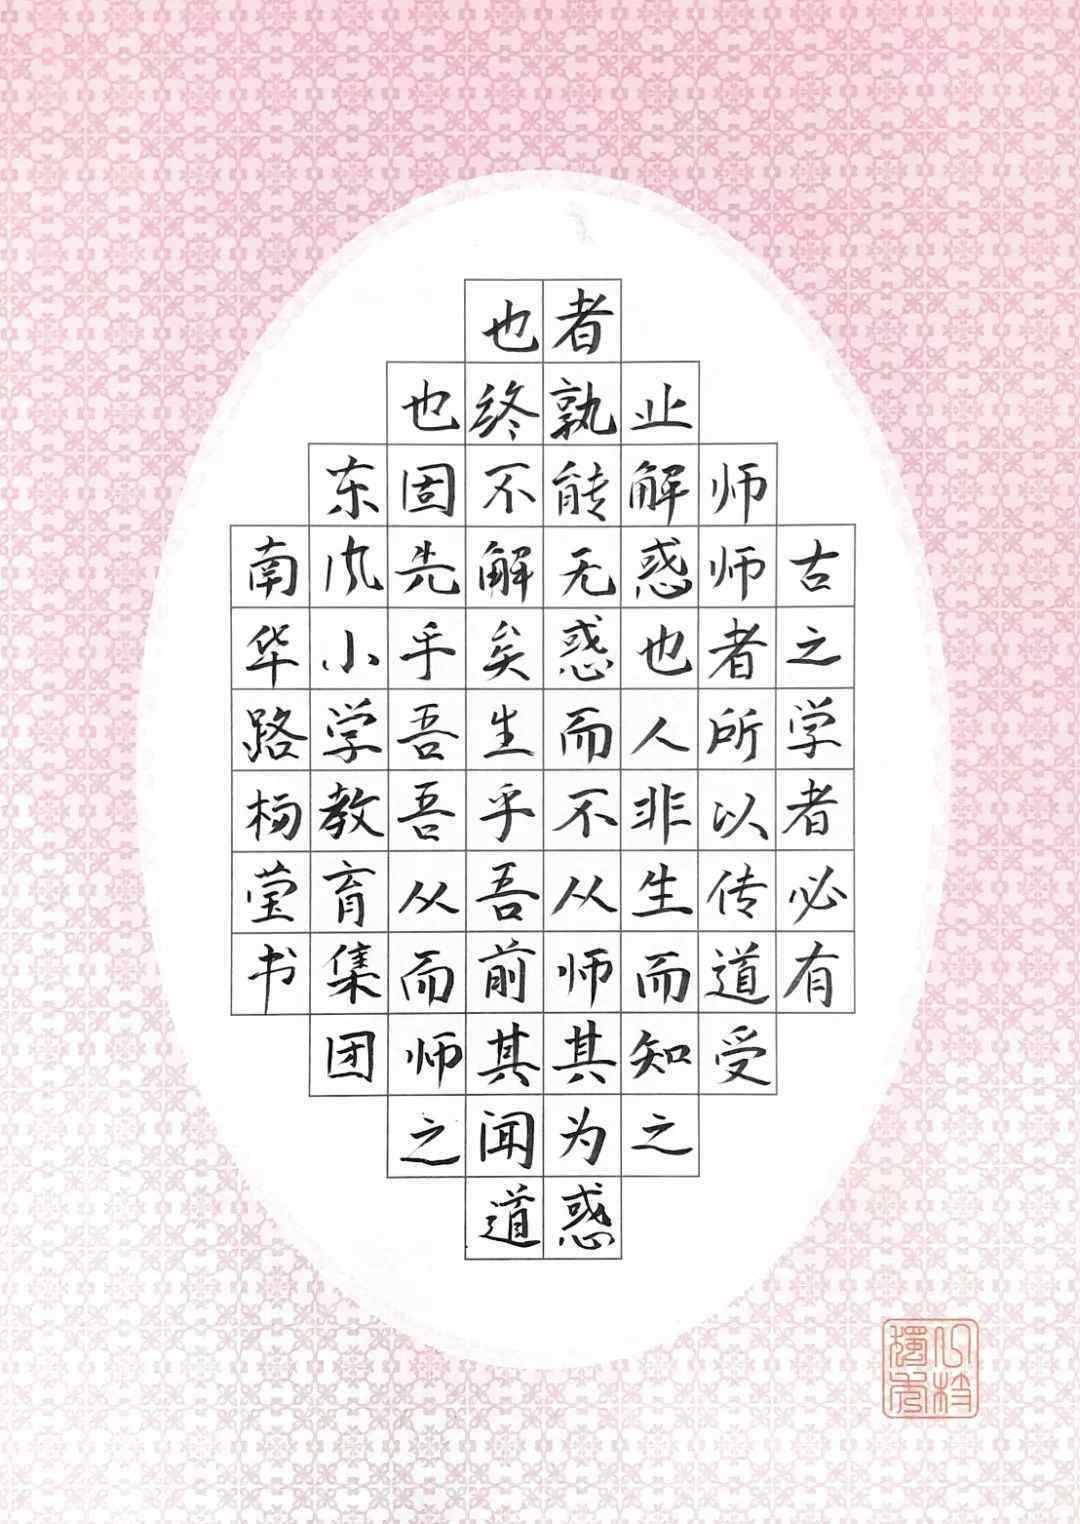 古之学者必有
师师者所以传道受
业解惑也人非生而知之
者孰能无惑而不从师其为惑
也终不解矣生乎吾前其闻道
也固先乎吾吾从而师之
东风小学教育集团
南华路杨莹书